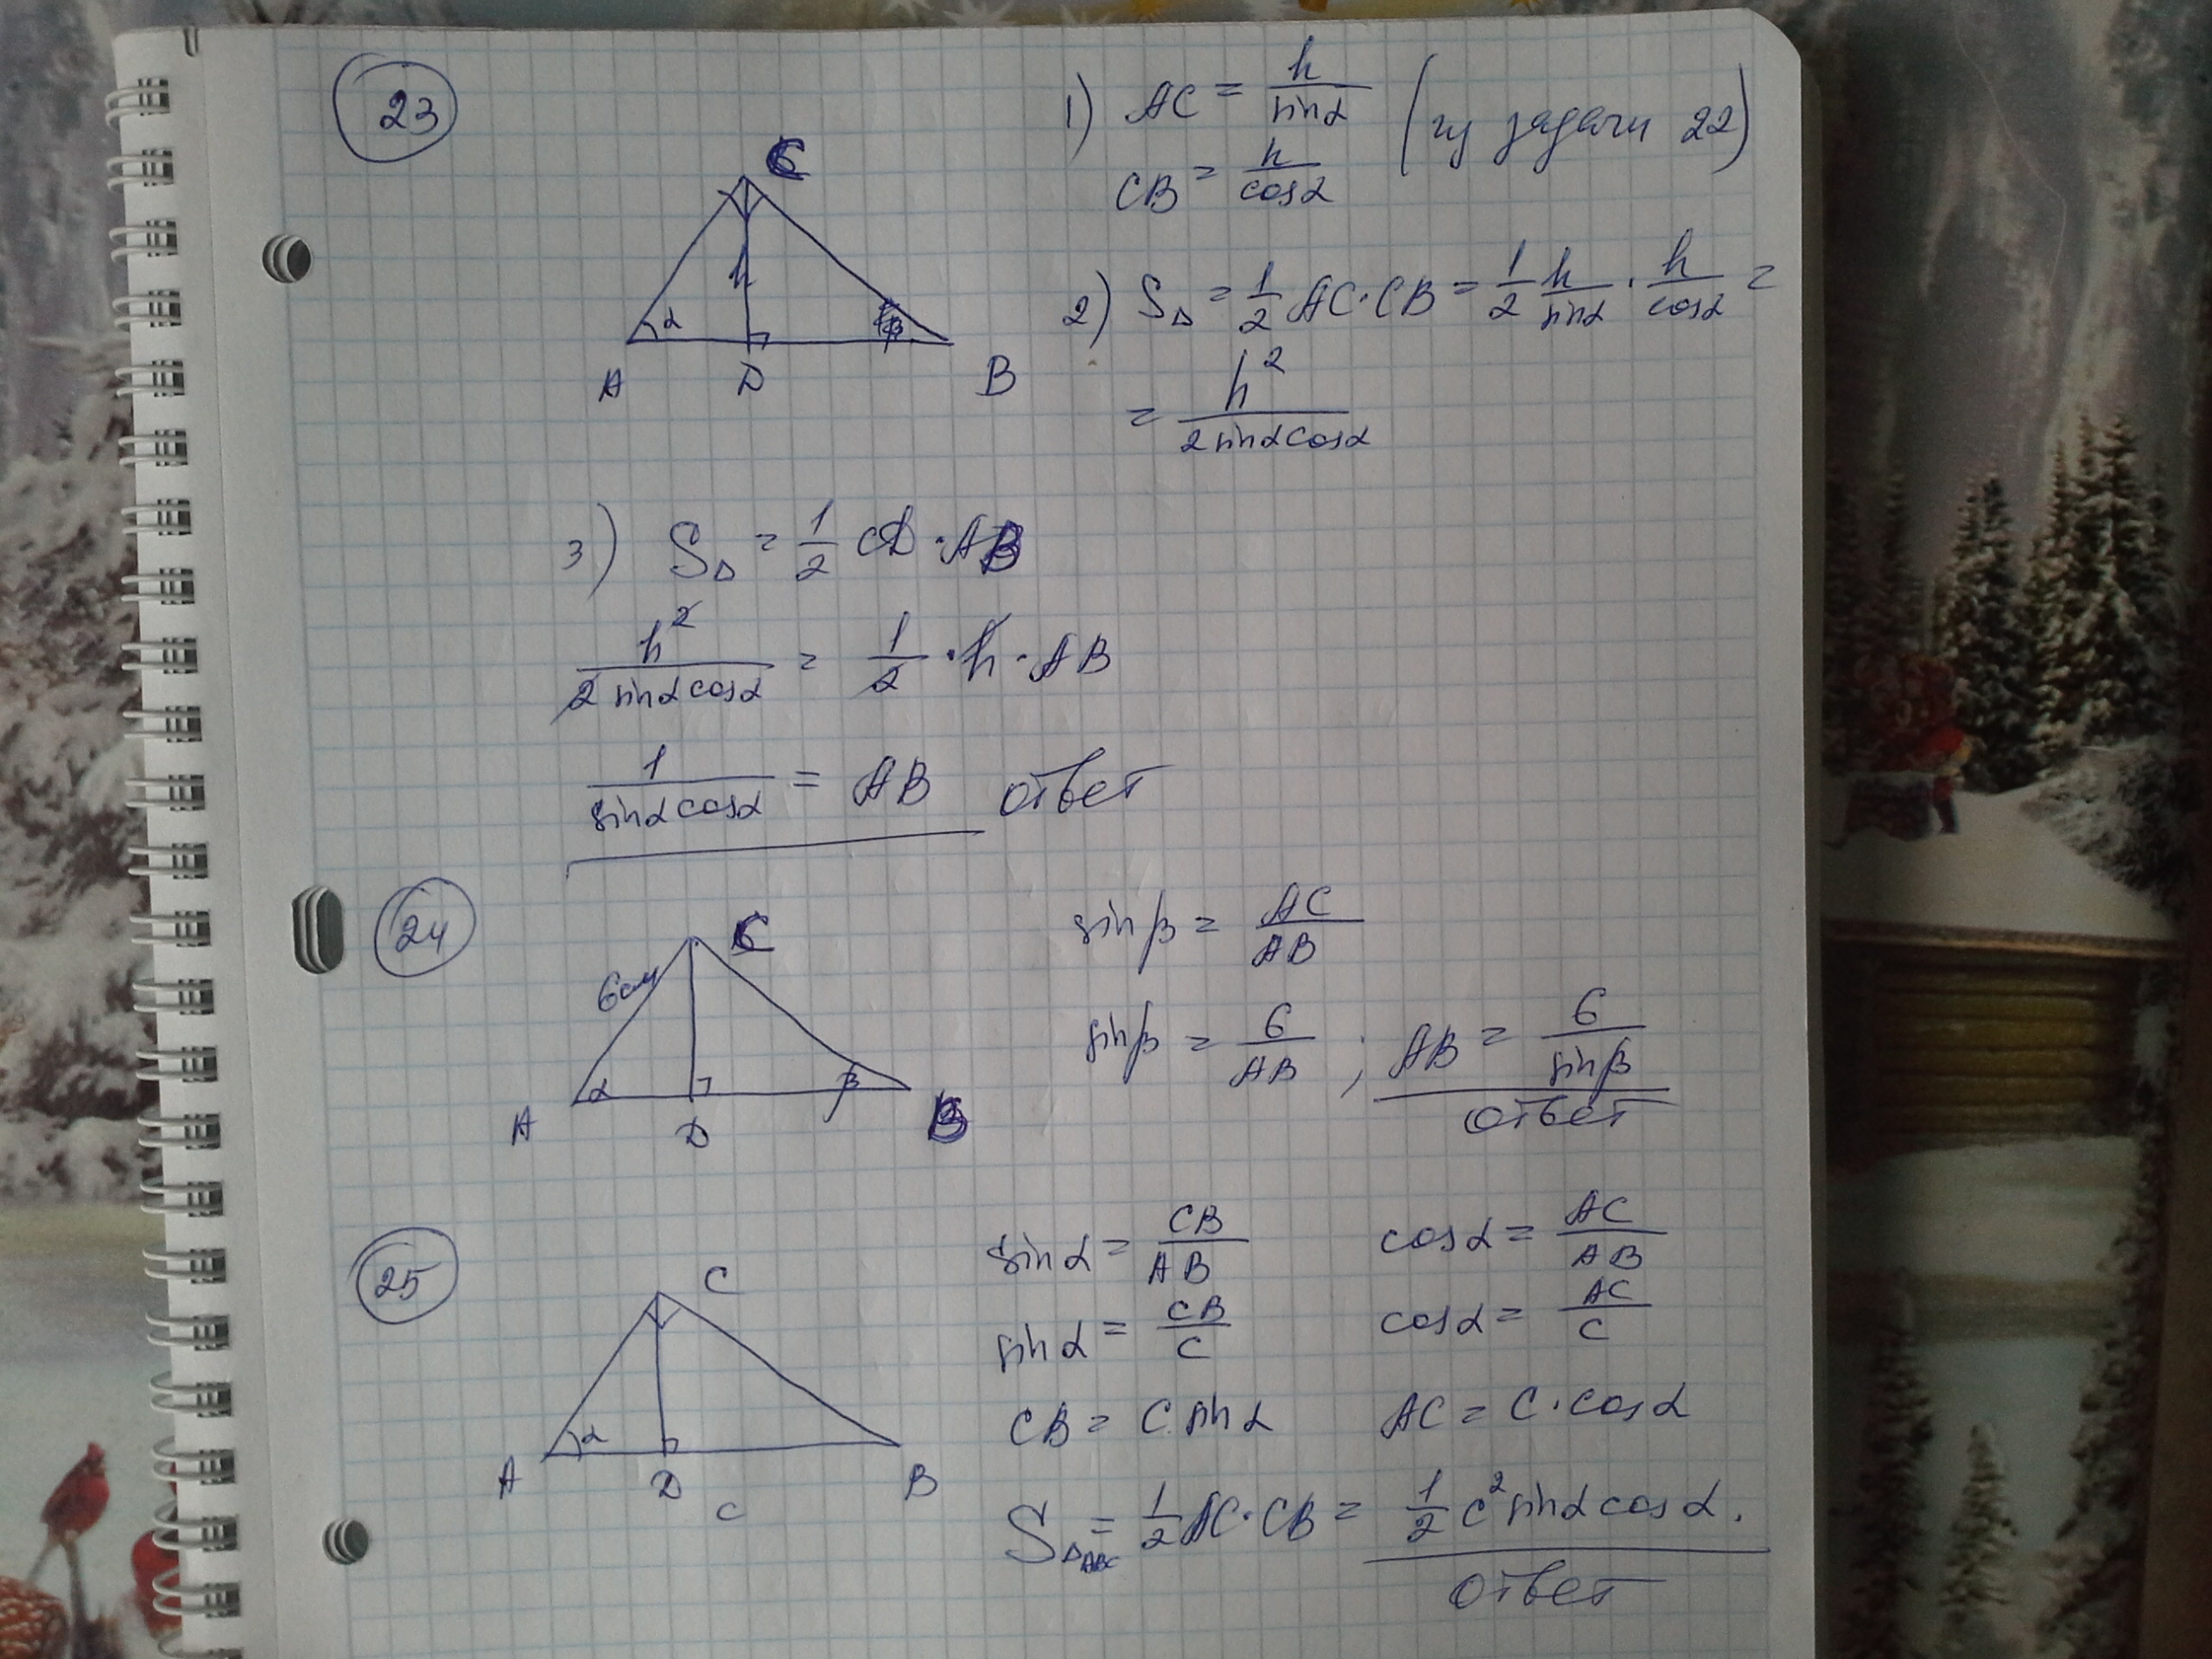 23
C
h
α
β
A D B
1) AC = h/sinα (из задачи 22)
CB = h/cosα
2) S△ = 1/2 AC·CB = 1/2 h/sinα · h/cosα =
= h²/2sinαcosα
3) S△ = 1/2 CD·AB
h²/2sinαcosα = 1/2·h·AB
1/sinαcosα = AB ответ
24
C
6см
α β
A D B
sinβ = AC/AB
sinβ = 6/AB ; AB = 6/sinβ
ответ
25
C
α
A D B
c
sinα = CB/AB cosα = AC/AB
sinα = CB/C cosα = AC/C
CB = C·sinα AC = C·cosα
S△ABC = 1/2 AC·CB = 1/2 c² sinα cosα.
ответ